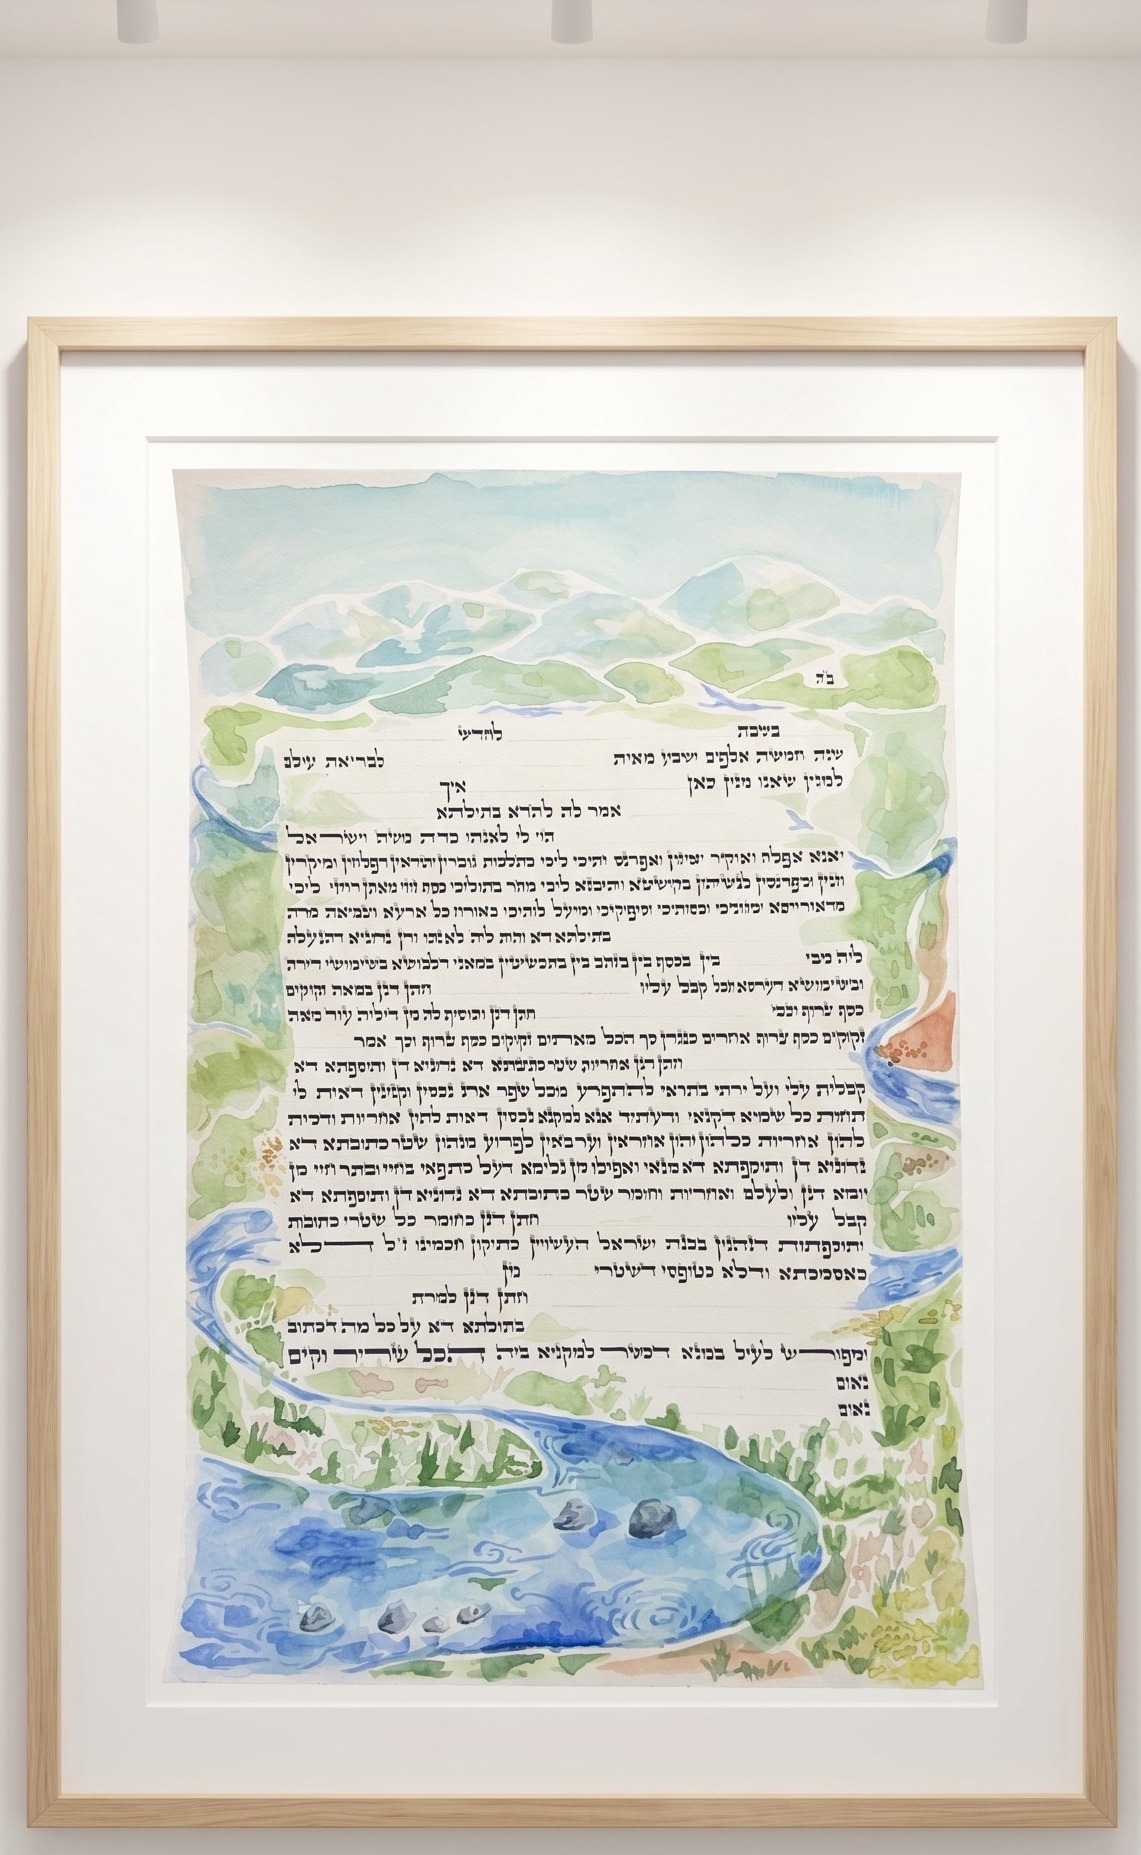 ב"ה
בשבת לחדש
שנת חמשת אלפים ושבע מאות לבריאת עולם
למנין שאנו מנין כאן איך
אמר לה להדא בתולתא
הוי לי לאנתו כדת משה וישראל
ואנא אפלח ואוקיר ואיזון ואפרנס יתיכי ליכי כהלכות גוברין יהודאין דפלחין ומוקרין
וזנין ומפרנסין לנשיהון בקושטא ויהיבנא ליכי מהר בתוליכי כסף זוזי מאתן דחזי ליכי
מדאורייתא ומזוניכי וכסותיכי וסיפוקיכי ומיעל לותיכי כאורח כל ארעא וצביאת מרת
בתולתא דא והות ליה לאנתו ודן נדוניא דהנעלת
ליה מבי בין בכסף בין בזהב בין בתכשיטין במאני דלבושא בשימושי דירה
ובשימושא דערסא הכל קבל עליו חתן דנן במאה זקוקים
כסף צרוף וצבי חתן דנן והוסיף לה מן דיליה עוד מאה
זקוקים כסף צרוף אחרים כנגדן סך הכל מאתים זקוקים כסף צרוף וכך אמר
חתן דנן אחריות שטר כתובתא דא נדוניא דן ותוספתא דא
קבלית עלי ועל ירתי בתראי להתפרע מכל שפר ארג נכסין וקנינין דאית לי
תחות כל שמיא דקנאי ודעתיד אנא למקנא נכסין דאית להון אחריות ודלית
להון אחריות כלהון יהון אחראין וערבאין לפרוע מנהון שטר כתובתא דא
נדוניא דן ותוספתא דא מנאי ואפילו מן גלימא דעל כתפאי בחיי ובתר חיי מן
יומא דנן ולעלם ואחריות וחומר שטר כתובתא דא נדוניא דן ותוספתא דא
קבל עליו חתן דנן כחומר כל שטרי כתובות
ותוספתות דנהגין בבנת ישראל העשויין כתיקון חכמינו ז"ל דלא
כאסמכתא ודלא כטופסי דשטרי מן
חתן דנן למרת
בתולתא דא על כל מה דכתוב
ומפורש לעיל במנא דכשר למקניא ביה הכל שריר וקים
נאום
נאום